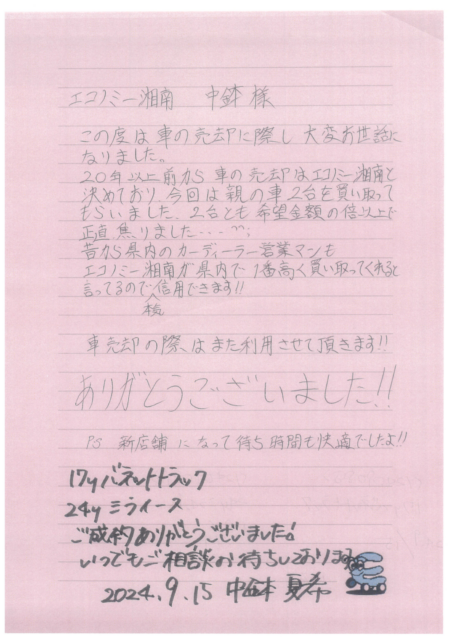 エコノミー湘南 中鉢 様
この度は 車の売却に際し 大変お世話に
なりました。
20年以上前から 車の売却はエコノミー湘南と
決めており、今回は親の車2台を買い取って
もらいました。2台とも 希望金額の倍以上で
正直 焦りました…
昔から県内のカーディーラー営業マンも
エコノミー湘南が県内で1番高く買い取ってくれると
言ってるので信用できます!!
車売却の際はまた利用させて頂きます!!
ありがとうございました!!
PS 新店舗になって待ち時間も快適でしたよ!!
17y バネットトラック
24y ミライース
ご成約ありがとうございました!
いつでもご相談お待ちしております
2024.9.15 中鉢 夏希